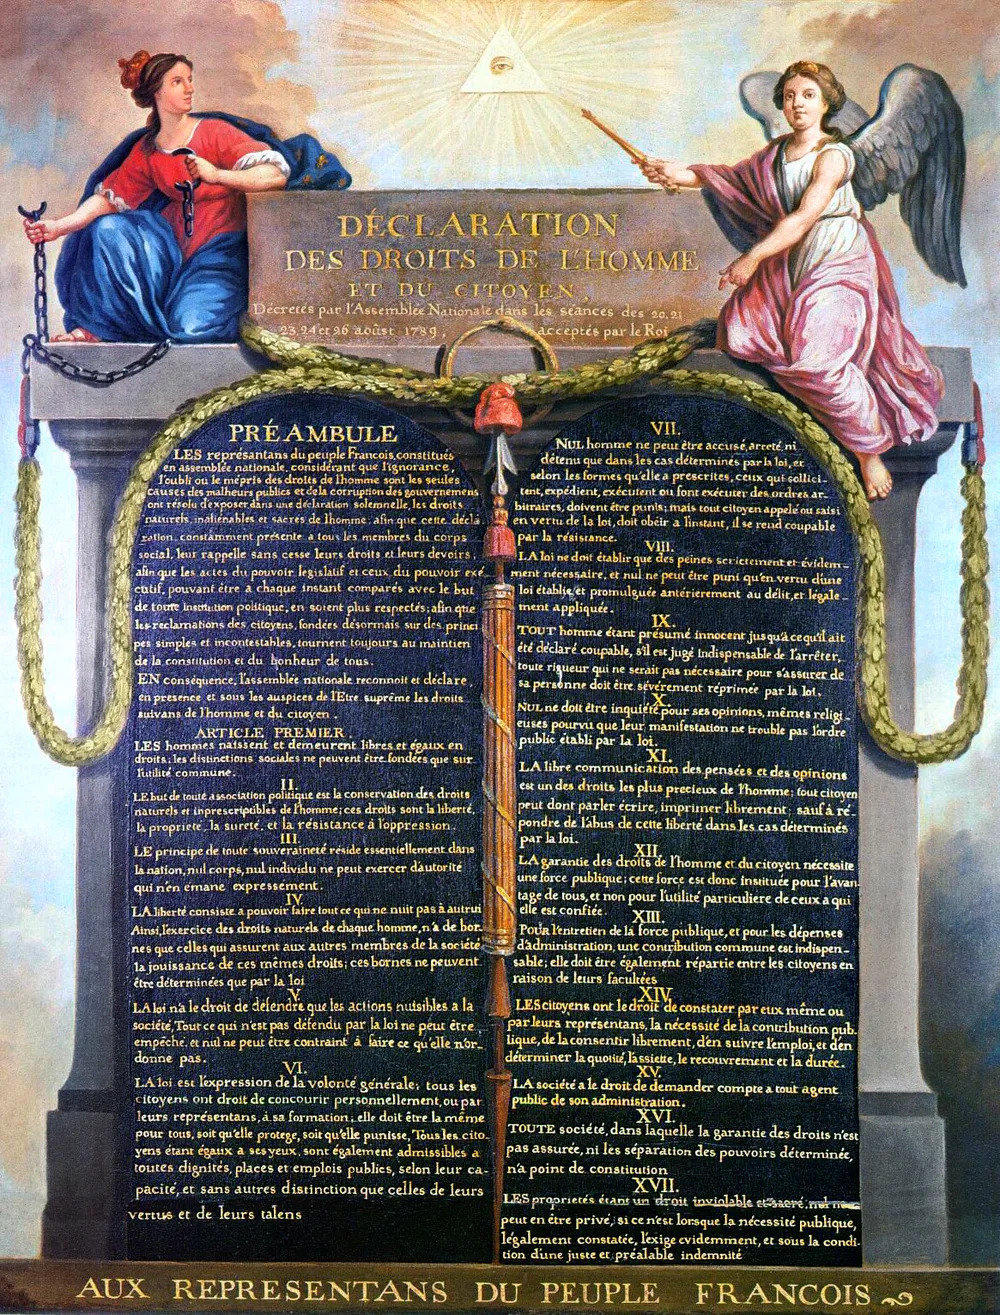 DÉCLARATION
DES DROITS DE L'HOMME
ET DU CITOYEN,
Décretés par l'Assemblée Nationale dans les séances des 20, 21
23, 24 et 26 août 1789, acceptés par le Roi
PRÉAMBULE
LES représantans du peuple Francois, constitués
en assemblée nationale, considérant que l'ignorance,
l'oubli ou le mépris des droits de l'homme sont les seules
causes des malheurs publics et de la corruption des gouvernemens
ont résolu d'exposer dans une déclaration solemnelle, les droits
naturels, inaliénables et sacrés de l'homme: afin que cette décla
ration, constamment présente a tous les membres du corps
social, leur rappelle sans cesse leurs droits et leurs devoirs,
afin que les actes du pouvoir législatif et ceux du pouvoir exé
cutif, pouvant être a chaque instant comparés avec le but
de toute institution politique, en soient plus respectés; afin que
les reclamations des citoyens, fondées désormais sur des princi
pes simples et incontestables, tournent toujours au maintien
de la constitution et du bonheur de tous.
EN conséquence, l'assemblée nationale reconnoit et déclare,
en presence et sous les auspices de l'Etre suprême les droits
suivans de l'homme et du citoyen.
ARTICLE PREMIER
LES hommes naissent et demeurent libres et égaux en
droits. les distinctions sociales ne peuvent être fondées que sur
l'utilité commune.
II.
LE but de toute association politique est la conservation des droits
naturels et inprescriptibles de l'homme; ces droits sont la liberté,
la propriété, la sureté, et la résistance à l'oppression.
III.
LE principe de toute souveraineté réside essentiellement dans
la nation, nul corps, nul individu ne peut exercer d'autorité
qui n'en émane expressement.
IV.
LA liberté consiste a pouvoir faire tout ce qui ne nuit pas à autrui
Ainsi, l'exercice des droits naturels de chaque homme, n'a de bor
nes que celles qui assurent aux autres membres de la société
la jouissance de ces mêmes droits; ces bornes ne peuvent
être déterminées que par la loi
V.
LA loi n'a le droit de défendre que les actions nuisibles a la
société, Tout ce qui n'est pas défendu par la loi ne peut être
empêché, et nul ne peut être contraint à faire ce qu'elle n'or-
donne pas.
VI.
LA loi est l'expression de la volonté générale; tous les
citoyens ont droit de concourir personnellement, ou par
leurs représentans, à sa formation; elle doit être la même
pour tous, soit qu'elle protege, soit qu'elle punisse, Tous les cito-
yens étant égaux a ses yeux, sont également admissibles a
toutes dignités, places et emplois publics, selon leur ca-
pacité, et sans autres distinction que celles de leurs
vertus et de leurs talens
VII.
NUL homme ne peut être accusé, arreté ni
détenu que dans les cas déterminés par la loi, et
selon les formes qu'elle a prescrites, ceux qui sollici-
tent, expédient, exécutent ou font exécuter des ordres ar-
bitraires, doivent être punis; mais tout citoyen appelé ou saisi
en vertu de la loi, doit obéir a l'instant, il se rend coupable
par la résistance.
VIII.
LA loi ne doit établir que des peines strictement et évidem-
ment nécessaire, et nul ne peut être puni qu'en vertu d'une
loi établie et promulguée antérierement au délit, et légale-
ment appliquée.
IX.
TOUT homme étant présumé innocent jusqu'a ce qu'il ait
été déclaré coupable, s'il est jugé indispensable de l'arrêter,
toute rigueur qui ne serait pas nécessaire pour s'assurer de
sa personne doit être sévèrement réprimée par la loi.
X.
NUL ne doit être inquiété pour ses opinions, mêmes religi-
euses pourvu que leur manifestation ne trouble pas l'ordre
public établi par la loi.
XI.
LA libre communication des pensées et des opinions
est un des droits les plus precieux de l'homme; tout citoyen
peut dont parler écrire, imprimer librement, sauf a ré
pondre de l'abus de cette liberté dans les cas déterminés
par la loi.
XII.
LA garantie des droits de l'homme et du citoyen nécessite
une force publique; cette force est donc instituée pour l'avan-
tage de tous, et non pour l'utilité particulière de ceux a qui
elle est confiée.
XIII.
POUR l'entretien de la force publique, et pour les dépenses
d'administration, une contribution commune est indispen-
sable; elle doit être également répartie entre les citoyens en
raison de leurs facultées
XIV.
LES citoyens ont le droit de constater par eux même ou
par leurs représentans, la nécessité de la contribution pub-
lique, de la consentir librement, d'en suivre l'emploi, et d'en
déterminer la quotité, l'assiette, le recouvrement et la durée.
XV.
LA société a le droit de demander compte a tout agent
public de son administration.
XVI.
TOUTE société, dans laquelle la garantie des droits n'est
pas assurée, ni les séparation des pouvoirs déterminée,
n'a point de constitution
XVII.
LES propriétés étant un droit inviolable et sacré, nul ne
peut en être privé, si ce n'est lorsque la nécessité publique,
légalement constatée, l'exige evidemment, et sous la condi-
tion d'une juste et préalable indemnité
AUX REPRESENTANS DU PEUPLE FRANCOIS